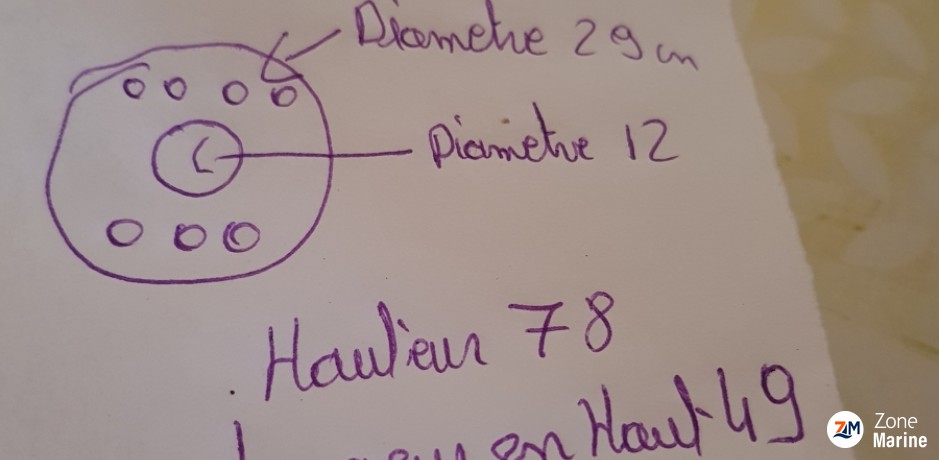 Diametre 29 cm
Diametre 12
Hauteur 78
en Haut 49
ZM Zone
Marine